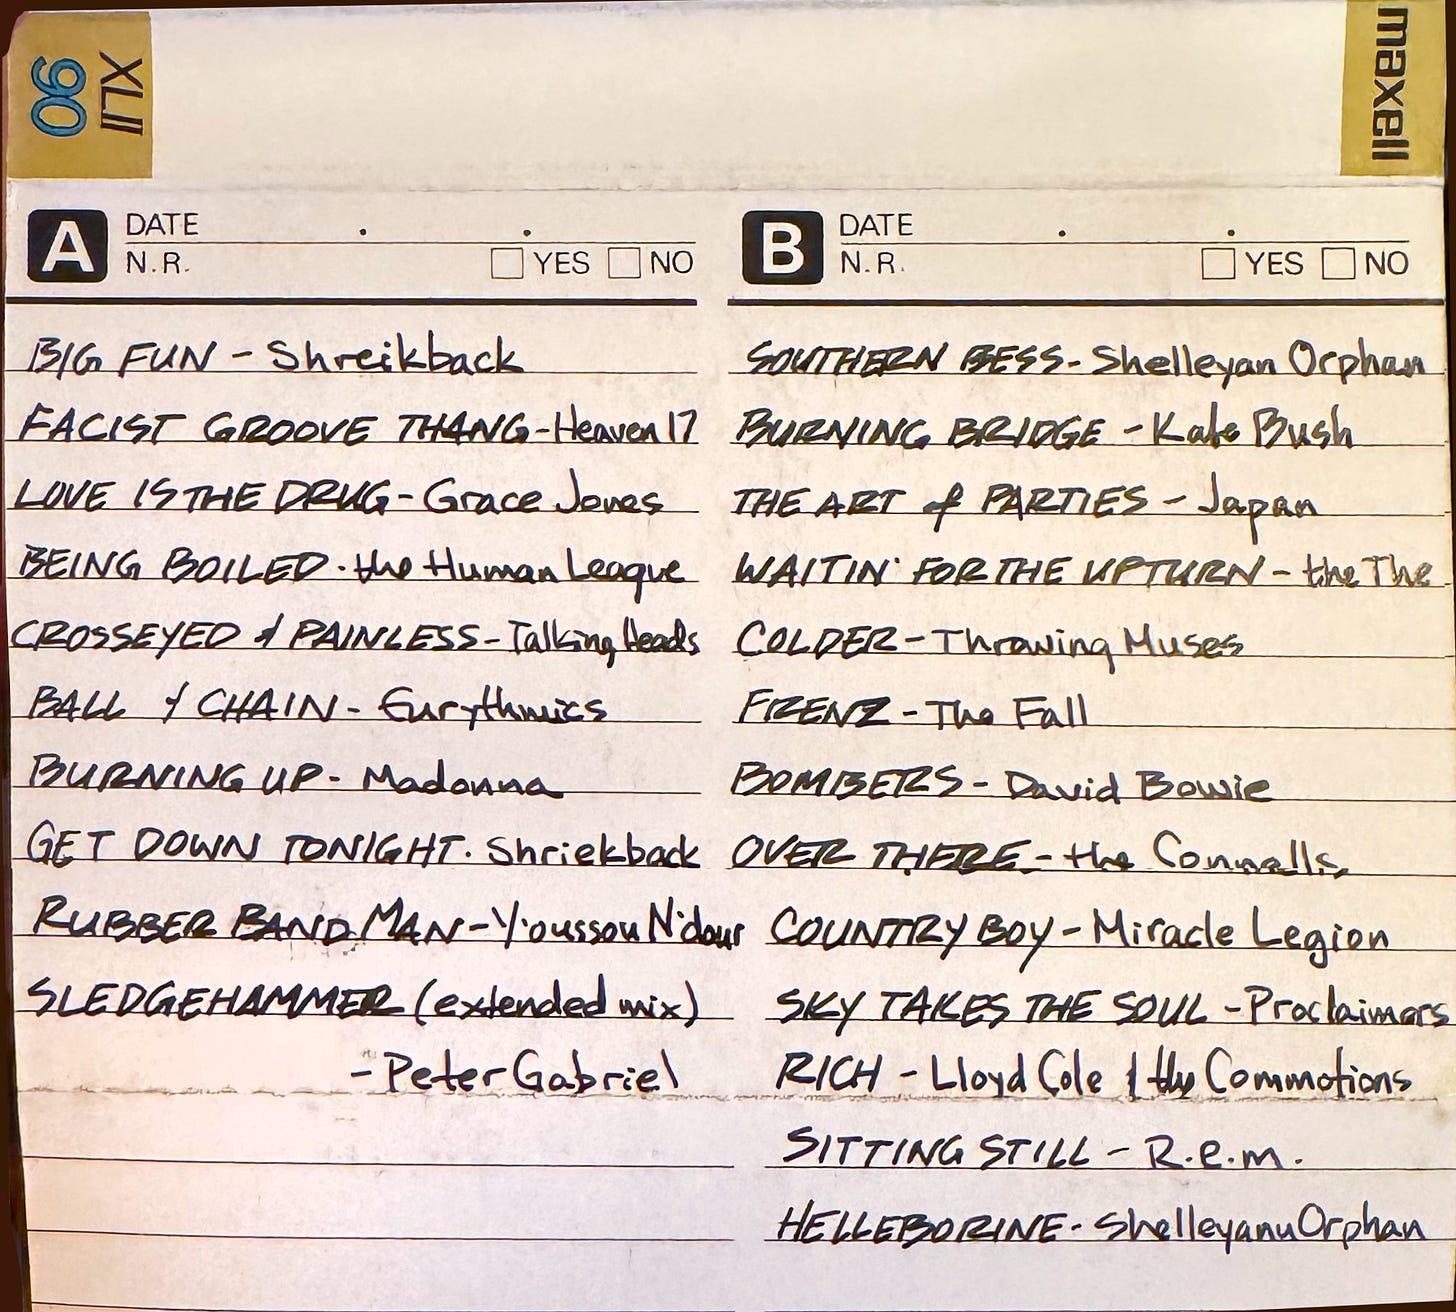 XLII 90
maxell
A DATE . .
N.R. YES NO
BIG FUN - Shreikback
FACIST GROOVE THANG - Heaven 17
LOVE IS THE DRUG - Grace Jones
BEING BOILED - the Human League
CROSSEYED & PAINLESS - Talking Heads
BALL & CHAIN - Eurythmics
BURNING UP - Madonna
GET DOWN TONIGHT - Shriekback
RUBBER BAND MAN - Y'oussou N'dour
SLEDGEHAMMER (extended mix)
- Peter Gabriel
B DATE . .
N.R. YES NO
SOUTHERN BESS - Shelleyan Orphan
BURNING BRIDGE - Kate Bush
THE ART of PARTIES - Japan
WAITIN' FOR THE UPTURN - the The
COLDER - Throwing Muses
FIRENZ - The Fall
BOMBERS - David Bowie
OVER THERE - the Connells
COUNTRY BOY - Miracle Legion
SKY TAKES THE SOUL - Proclaimers
RICH - Lloyd Cole & the Commotions
SITTING STILL - R.e.m.
HELLEBORINE - Shelleyanu Orphan